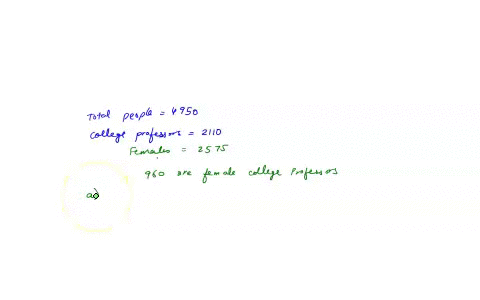 Total people = 4950
College professors = 2110
Females = 2575
960 are female college Professors
a)